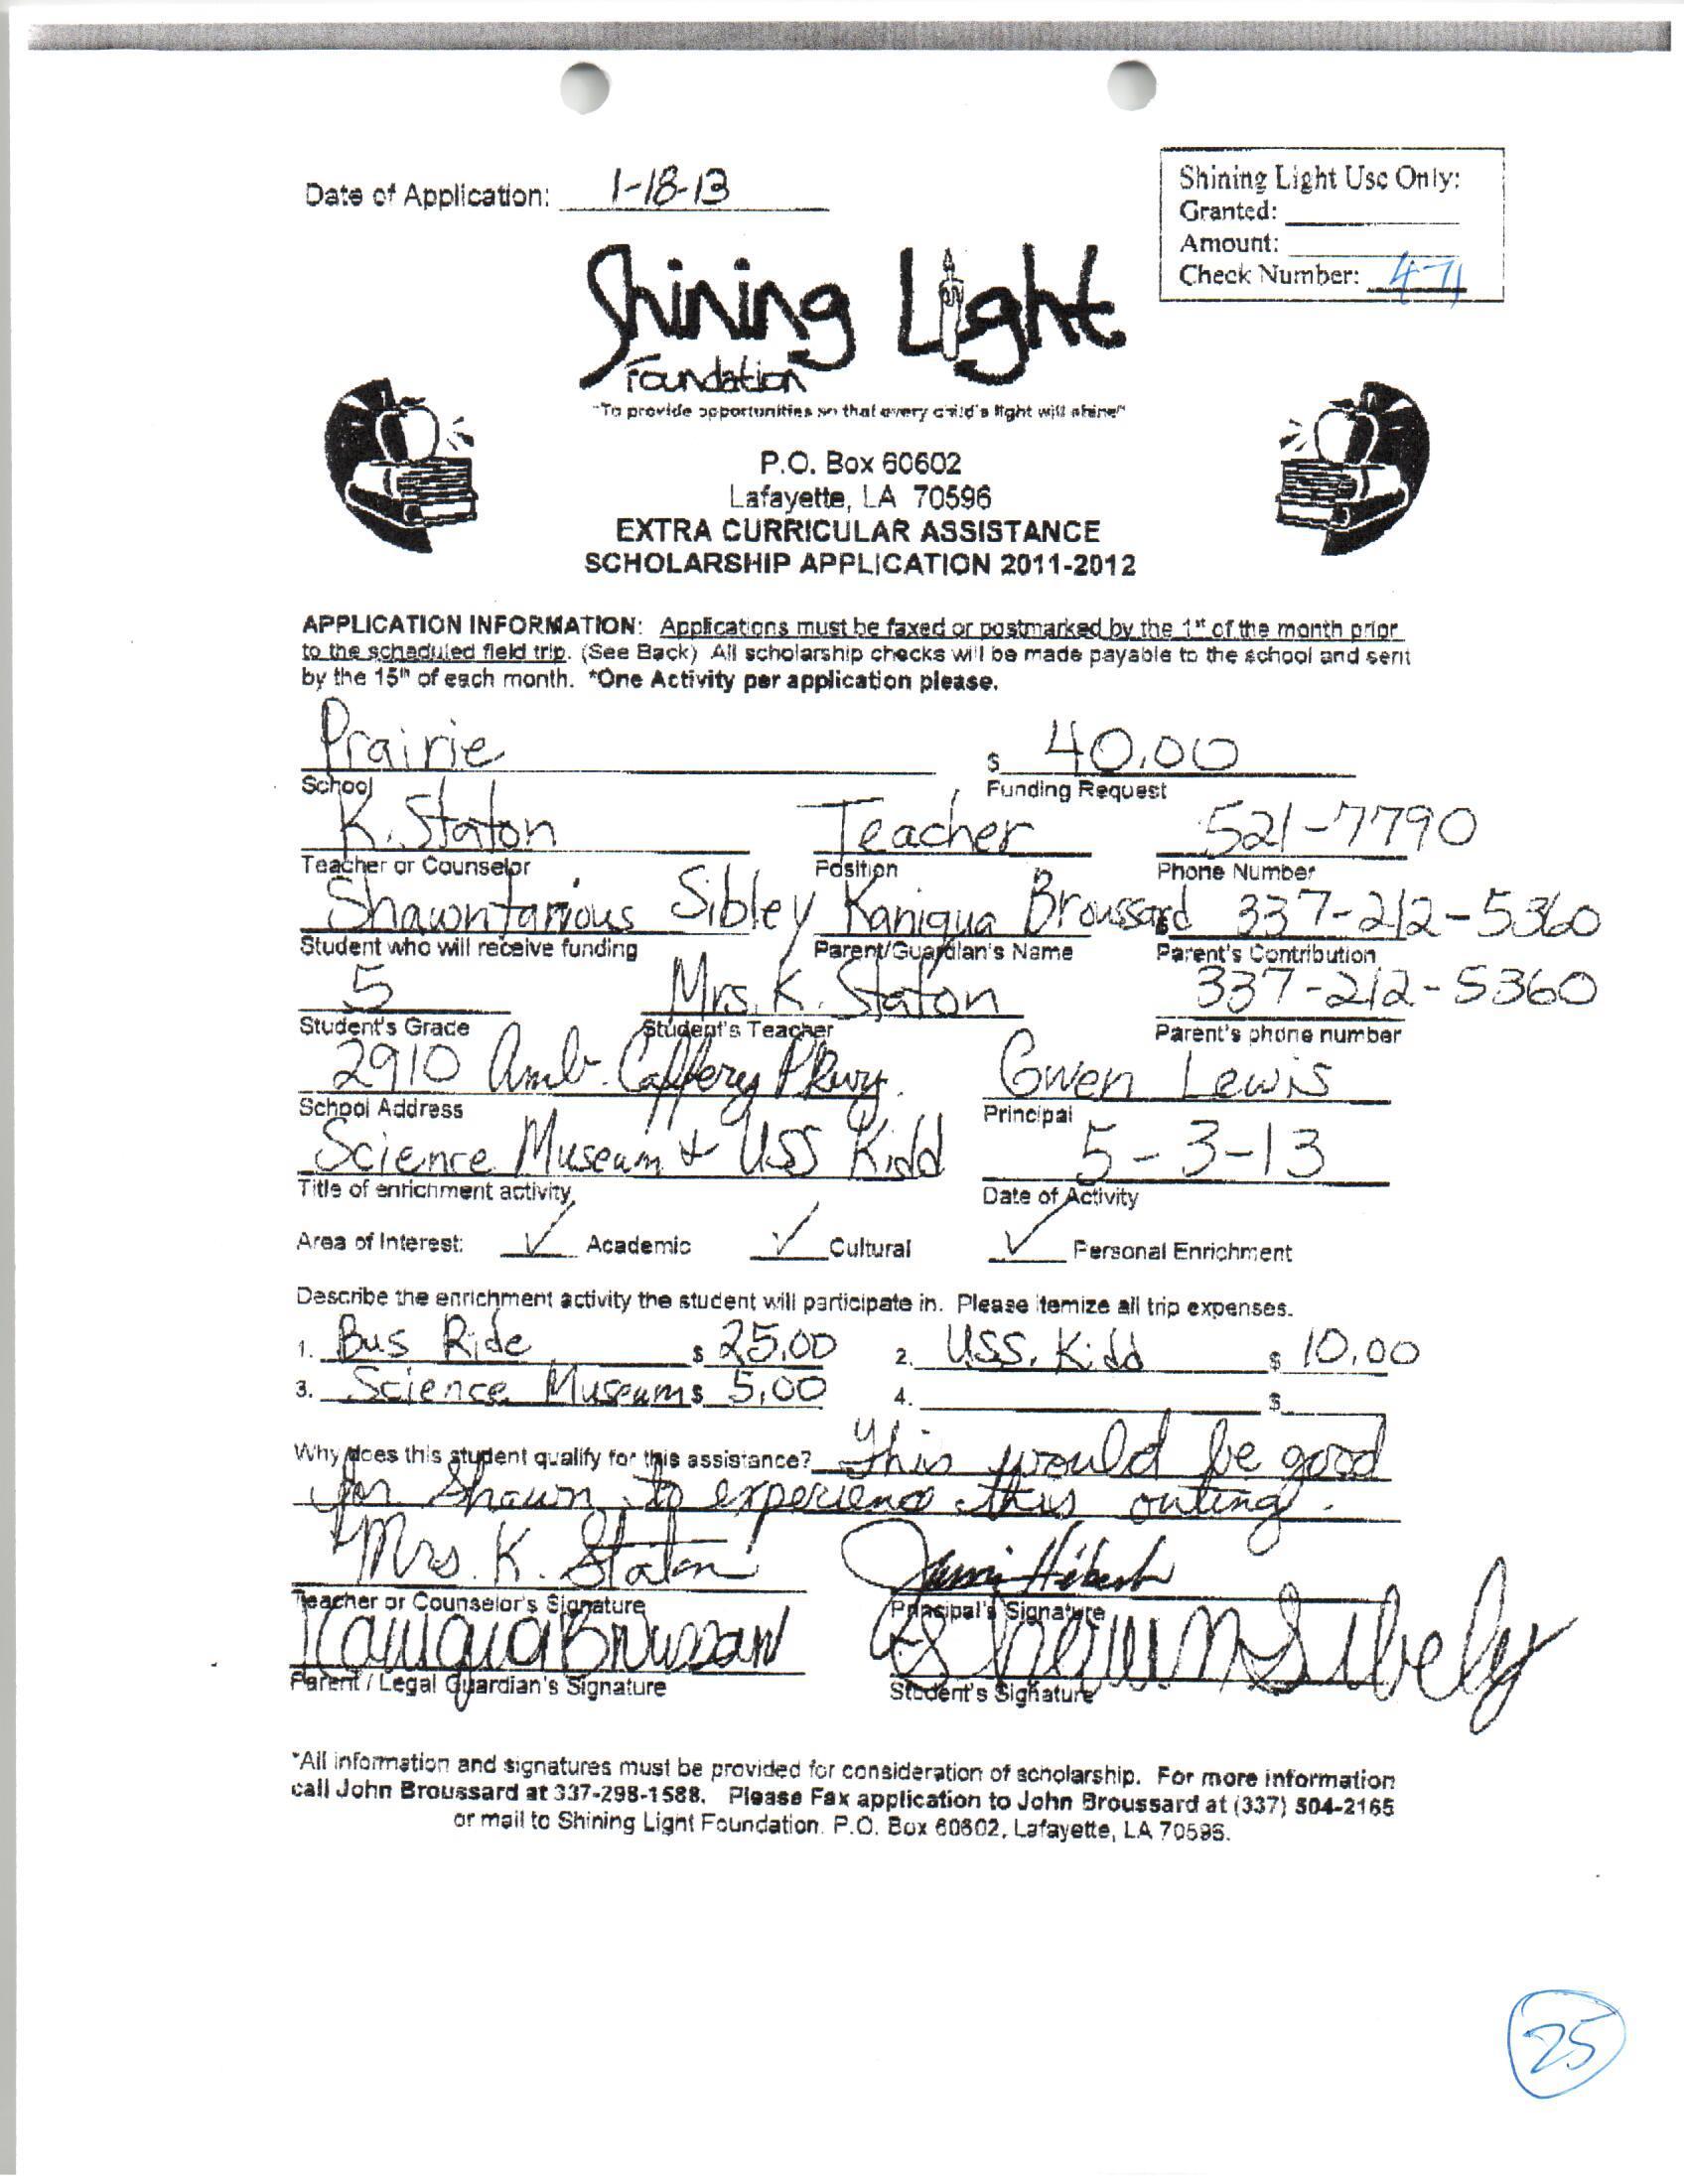 Date of Application: 1-18-13
Shining Light Use Only:
Granted:
Amount:
Check Number: 471
Shining Light
Foundation
"To provide opportunities so that every child's light will shine"
P.O. Box 60602
Lafayette, LA 70596
EXTRA CURRICULAR ASSISTANCE
SCHOLARSHIP APPLICATION 2011-2012
APPLICATION INFORMATION: Applications must be faxed or postmarked by the 1st of the month prior
to the scheduled field trip. (See Back) All scholarship checks will be made payable to the school and sent
by the 15th of each month. *One Activity per application please.
Prairie $ 40.00
School Funding Request
K. Staton Teacher 521-7790
Teacher or Counselor Position Phone Number
Shawntarious Sibley Kaniqua Broussard 337-212-5360
Student who will receive funding Parent/Guardian's Name Parent's Contribution
5 Mrs. K. Staton 337-212-5360
Student's Grade Student's Teacher Parent's phone number
2910 Amb. Caffery Pkwy. Gwen Lewis
School Address Principal
Science Museum & USS Kidd 5-3-13
Title of enrichment activity Date of Activity
Area of Interest: ✓ Academic ✓ Cultural ✓ Personal Enrichment
Describe the enrichment activity the student will participate in. Please itemize all trip expenses.
1. Bus Ride $ 25.00 2. USS. Kidd $ 10.00
3. Science Museum $ 5.00 4. $
Why does this student qualify for this assistance? This would be good
for Shawn to experience this outing.
Mrs. K. Staton Jami Hebert
Teacher or Counselor's Signature Principal's Signature
Kaniqua Broussard Shawn Sibely
Parent / Legal Guardian's Signature Student's Signature
*All information and signatures must be provided for consideration of scholarship. For more information
call John Broussard at 337-298-1588. Please Fax application to John Broussard at (337) 504-2165
or mail to Shining Light Foundation. P.O. Box 60602, Lafayette, LA 70596.
25